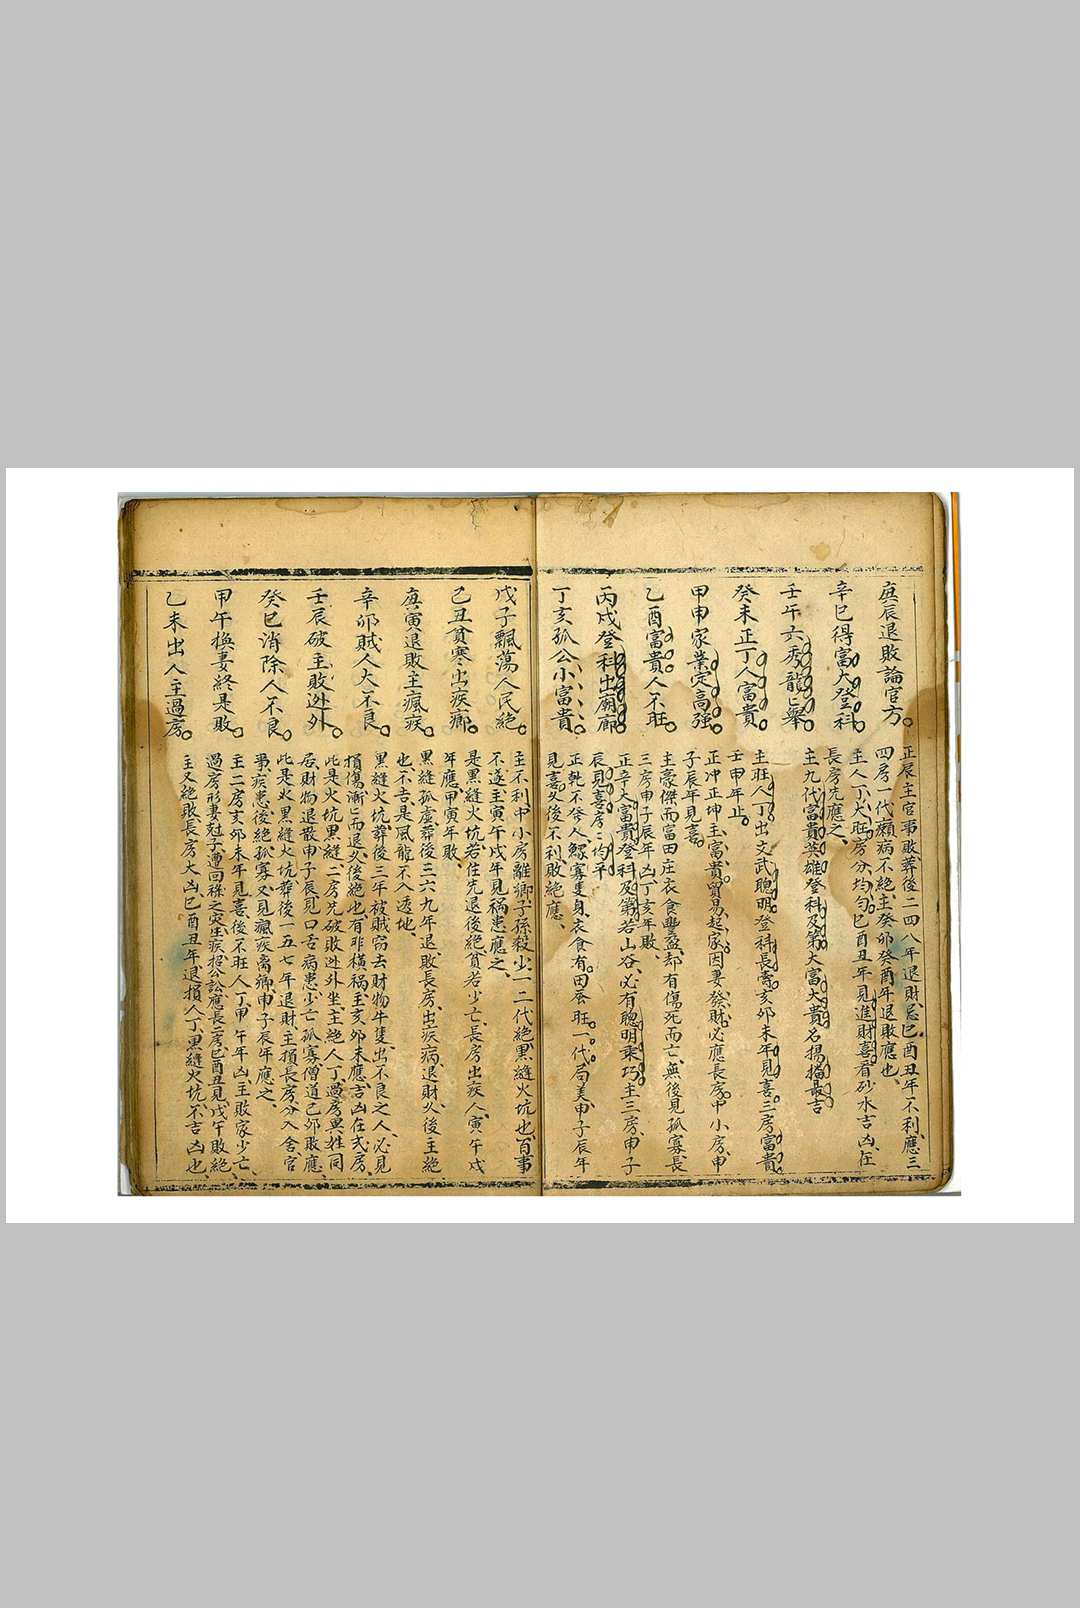 庚辰退敗論官方
正辰主官事敗葬後二四八年退財忌巳酉丑年不利應三
四房一代癲病不絶主癸卯癸酉年退敗應也
辛巳得富大登科
主人丁大旺房分均勻巳酉丑年見進財喜看砂水吉凶在
長房先應之
壬午六秀龍ミ舉
主九代富貴英雄登科及第大富大貴名揚最吉
癸未正丁人富貴
主旺人丁出文武聰明登科長壽亥卯未年見喜三房富貴
壬申年止
甲申家業定高強
正冲正坤主富貴貿易起家因妻發財必應長房中小房申
子辰年見喜
乙酉富貴人不旺
主豪傑而富田庄衣食豐盈却有傷死而亡無後見孤寡長
三房申子辰年凶丁亥年敗
丙戌登科出廟廊
正辛大富貴登科及第若山谷必有聰明乘巧主三房申子
辰見喜房ミ均平
丁亥孤公小富貴
正乾不發人鰥寡隻身衣食有田蚕旺一代局美申子辰年
見喜久後不利敗絶應
戊子飄蕩人民絶
主不利中小房離鄉子孫殺少一二代絶黒縫火坑也百事
不遂主寅午戌年見禍患應之
己丑貧寒出疾癆
是黒縫火坑若住先退後絶貧若少亡長房出疾人寅午戌
年應甲寅年敗
庚寅退敗主瘋疾
黒縫孤虛葬後三六九年退敗長房出疾病退財久後主絶
也不吉是風龍不入透地
辛卯賊人大不良
黒縫火坑葬後三年被賊竊去財物牛隻出不良之人必見
損傷漸ミ而退久後絶也有非橫禍主亥卯未應吉凶在式房
壬辰破主敗迯外
此是火坑黒縫二房先破敗迯外坐主絶人丁過房異姓同
居財物退散申子辰見口舌病患少亡孤寡僧道己卯敗應
癸巳消除人不良
此是火黒縫火坑葬後一五七年退財主損長房分入舍官
事疾患後絶孤寡又見瘋疾离鄉申子辰年應之
甲午換妻終是敗
主二房亥卯未年見喜後不旺人丁甲午年凶主敗家少亡
過房形妻尅子遭回祿之災生疾招公訟應長二房巳酉丑見戊午敗絶
乙未出人主過房
主又絶敗長房大凶巳酉丑年退損人丁黒縫火坑不吉凶也